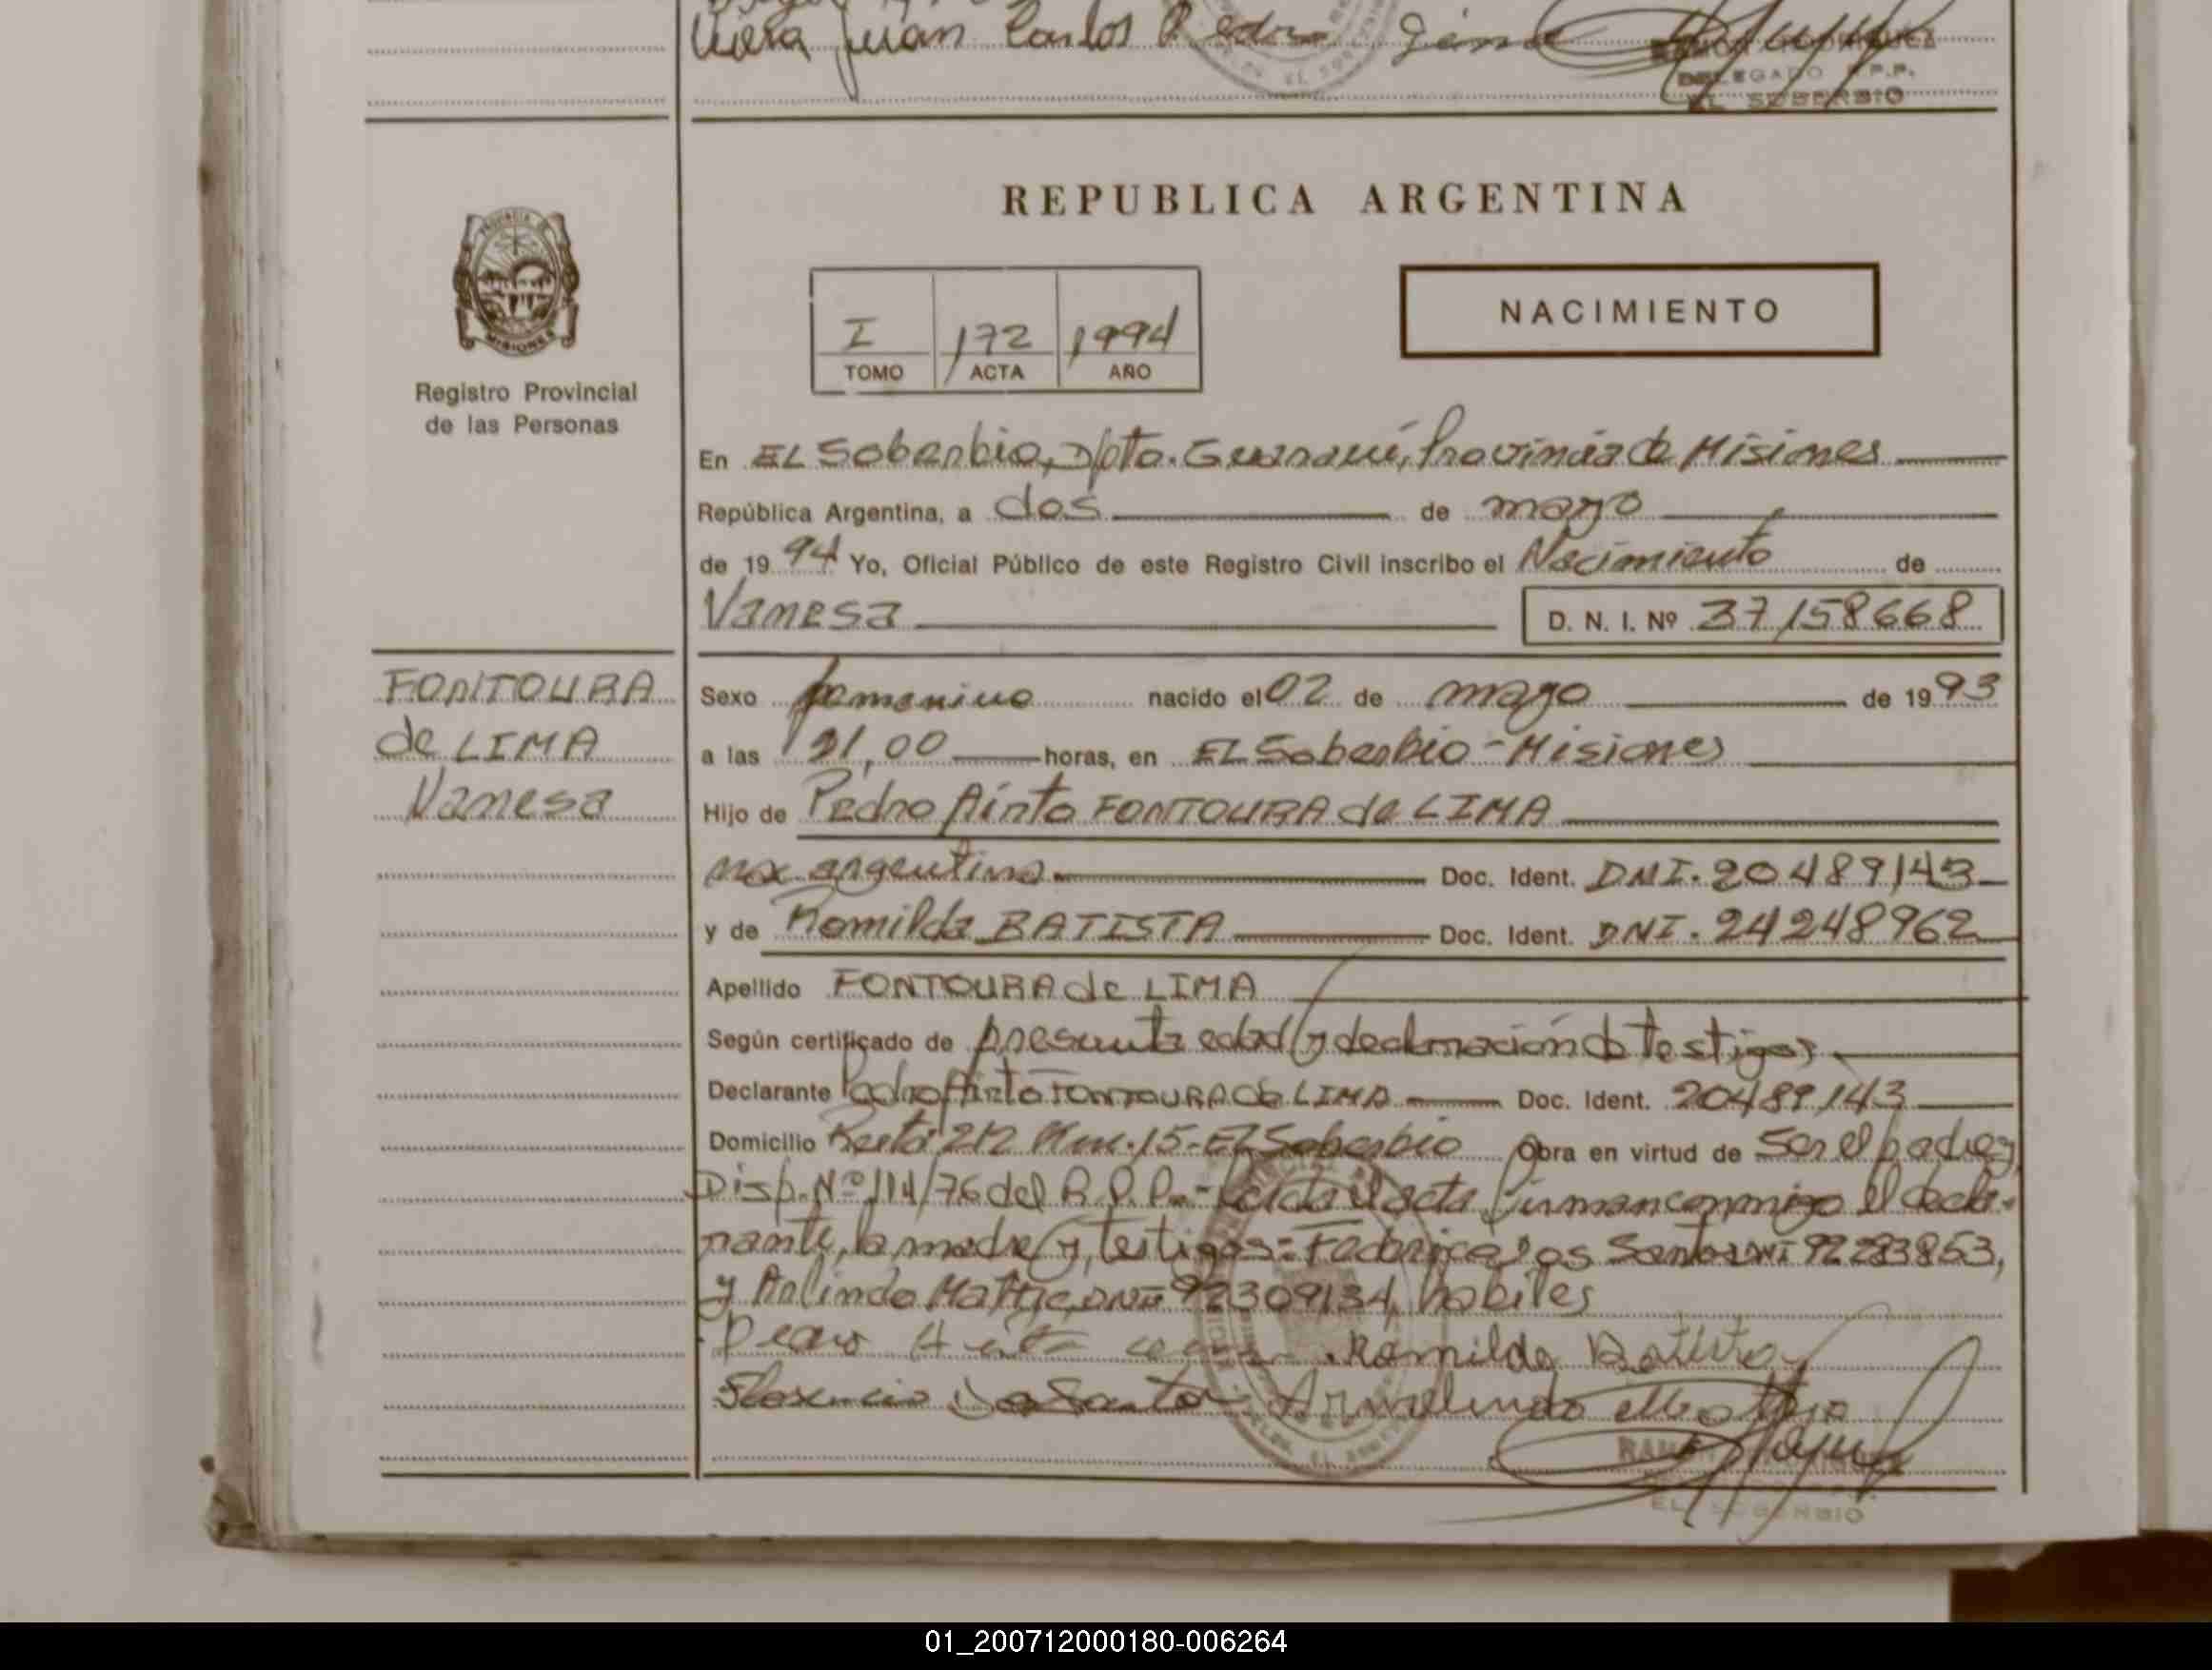 Viera Juan Carlos Pedro
RAMON RODRIGUEZ
DELEGADO R.P.P.
EL SOBERBIO
PROVINCIA DE
MISIONES
Registro Provincial
de las Personas
REPUBLICA ARGENTINA
I 172 1994
TOMO ACTA AÑO
NACIMIENTO
En EL Soberbio, Dpto. Guaraní, Provincia de Misiones
República Argentina, a dos de mayo
de 1994 Yo, Oficial Público de este Registro Civil inscribo el Nacimiento de
Vanesa D. N. I. Nº 37158668
FONTOURA
de LIMA
Vanesa
Sexo femenino nacido el 02 de mayo de 1993
a las 21,00 horas, en EL Soberbio - Misiones
Hijo de Pedro Airto FONTOURA de LIMA
nac. argentina Doc. Ident. DNI. 20489143
y de Romilda BATISTA Doc. Ident. DNI. 24248962
Apellido FONTOURA de LIMA
Según certificado de presunta edad y declaración de testigos
Declarante Pedro Airto FONTOURA de LIMA Doc. Ident. 20489143
Domicilio Ruta 212 Km. 15 - EL Soberbio Obra en virtud de Ser el padre y
Disp. Nº 114/76 del R.P.P. - Leída el acta firman conmigo el decla-
rante, la madre y testigos: dos Santos DNI 92283853,
y Arlindo DNI 92309134, hábiles
Pedro Airto Romilda Batista
dos Santos
EL SOBERBIO
01_200712000180-006264